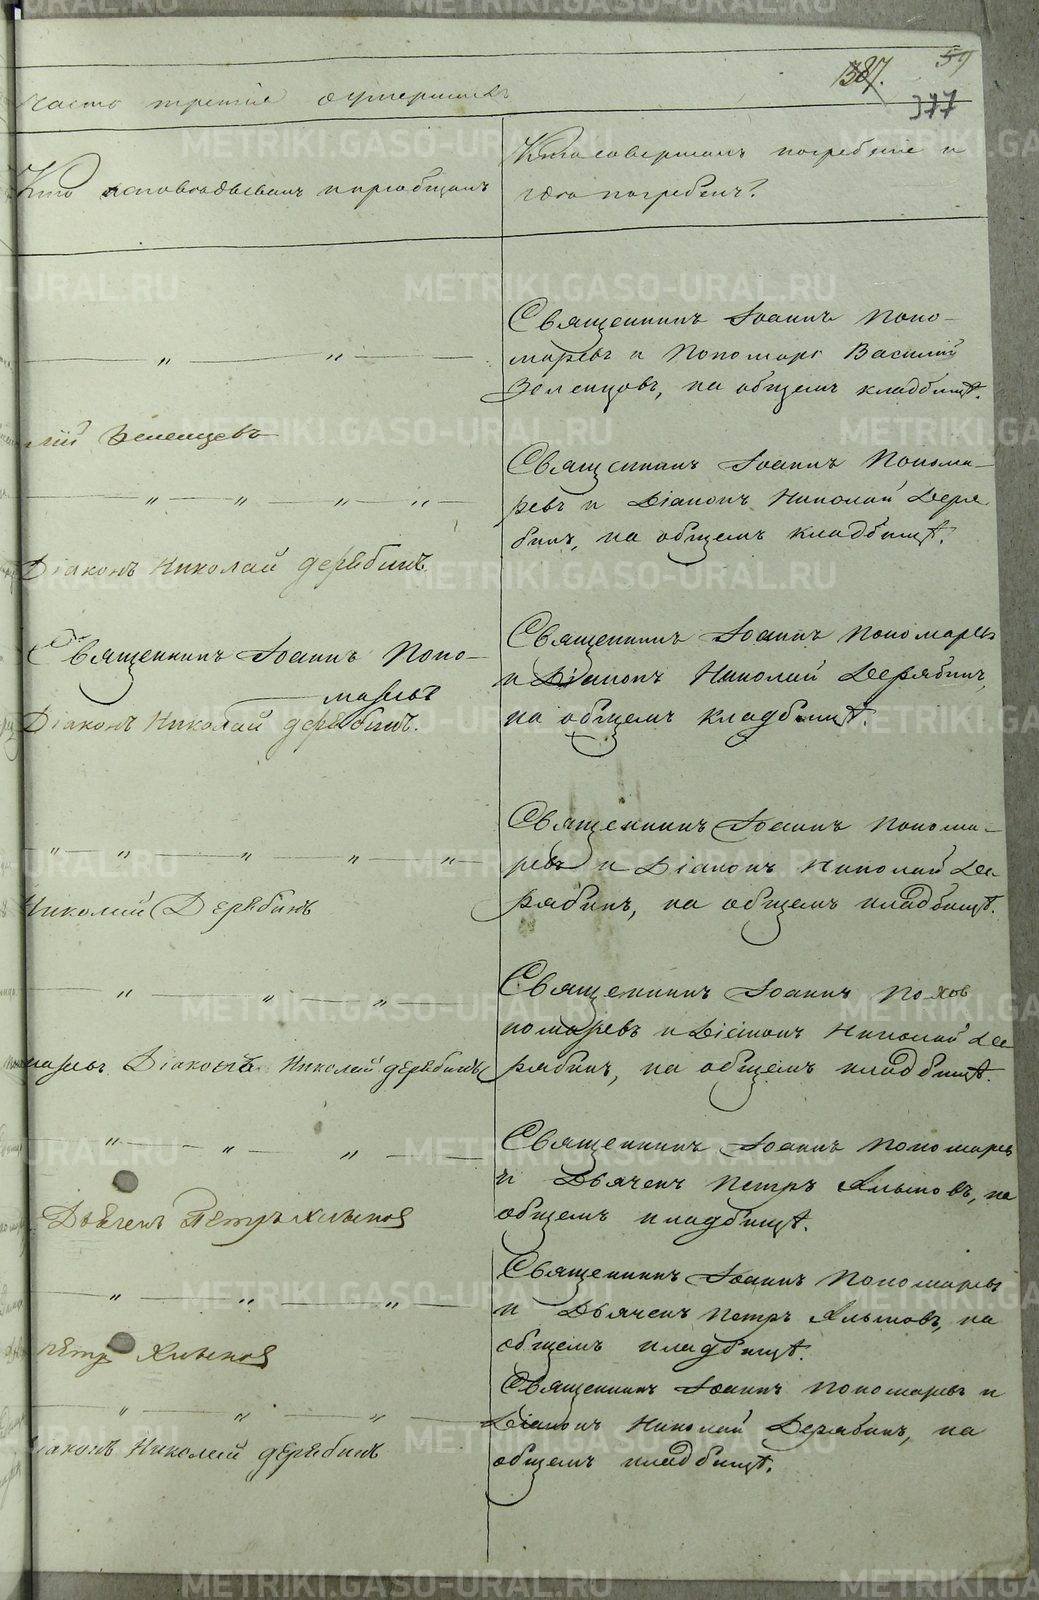 59
387.
377
часть третія о умершихъ
Кто исповѣдывалъ и пріобщалъ
Кто совершалъ погребеніе и
гдѣ погребенъ?
Священникъ Іоаннъ Поно-
маревъ и Пономарь Василій
Зеленцовъ, на общемъ кладбищѣ.
лій Зеленцевъ
Священникъ Іоаннъ Понома-
ревъ и Діаконъ Николай Деря
бинъ, на общемъ кладбищѣ.
Діаконъ Николай Дерябинъ
Священникъ Іоаннъ Поно-
маревъ
Діаконъ Николай Дерябинъ.
Священникъ Іоаннъ Пономаревъ
и Діаконъ Николай Дерябинъ,
на общемъ кладбищѣ.
Священникъ Іоаннъ Понома-
ревъ и Діаконъ Николай Де
рябинъ, на общемъ кладбищѣ.
Николай Дерябинъ
Священникъ Іоаннъ По
номаревъ и Діаконъ Николай Де
рябинъ, на общемъ кладбищѣ.
маревъ Діаконъ Николай Дерябинъ
Священникъ Іоаннъ Пономаревъ
и Дьячекъ Петръ Хлыновъ, на
общемъ кладбищѣ.
Дьячекъ Петръ Хлыновъ
Священникъ Іоаннъ Пономаревъ
и Дьячекъ Петръ Хлыновъ, на
общемъ кладбищѣ.
Петръ Хлыновъ
Священникъ Іоаннъ Пономаревъ и
Діаконъ Николай Дерябинъ, на
общемъ кладбищѣ.
Діаконъ Николай Дерябинъ
METRIKI.GASO-URAL.RU